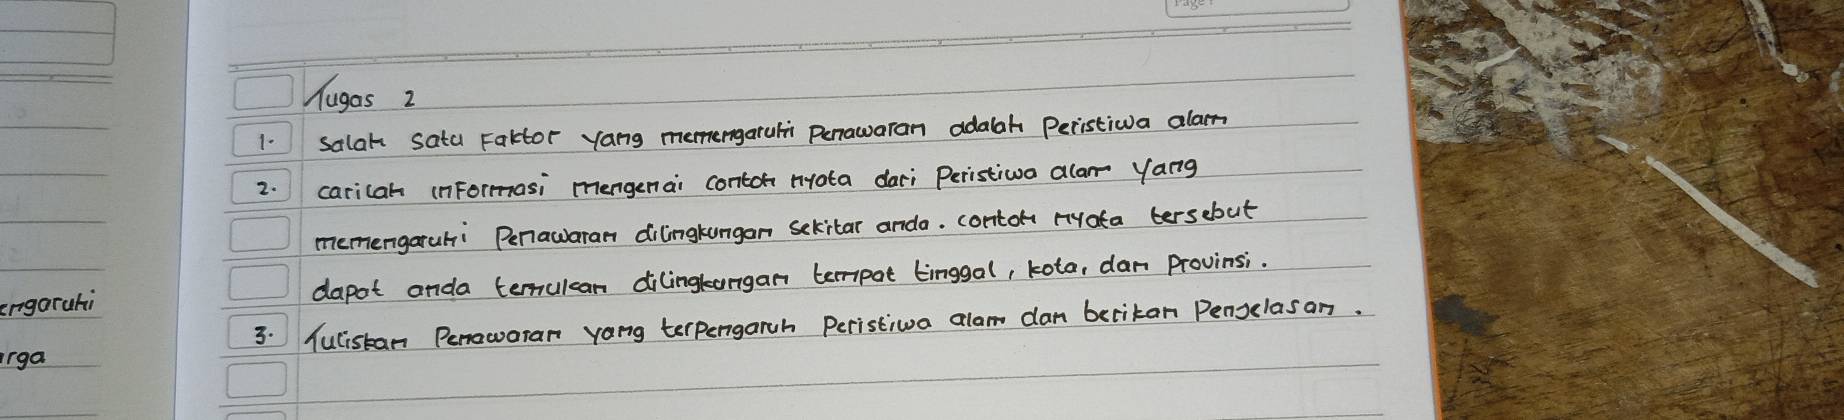 Page:
Tugas 2
1. salah satu Faktor yang memengaruhi Penawaran adalah Peristiwa alam
2. carilah inFormasi mengenai contoh nyata dari Peristiwa alam yang
memengaruhi Penawaran dilingkungan sekitar anda. contoh nyata tersebut
dapat anda temukan dilingkungan tempat tinggal, kota, dan Provinsi.
3. Tuliskan Penawaran yang terpengaruh Peristiwa alam dan berikan Penjelasan.
engaruhi
arga